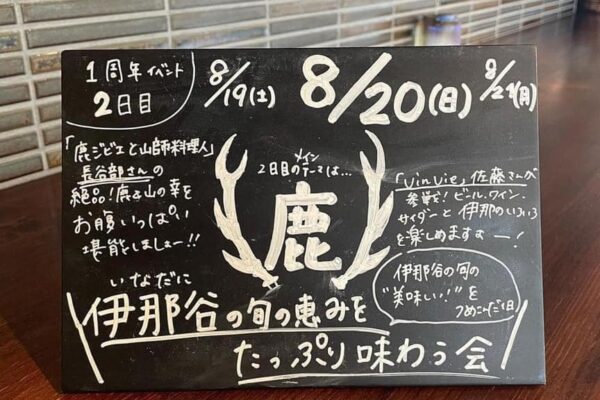 1周年イベント
2日目
8/19(土)
8/20(日)
8/21(月)
「鹿ジビエと山師料理人」
長谷部さんの
絶品!鹿と山の幸を
お腹いっぱい
堪能しましょー!!
メイン
2日目のテーマは…
鹿
「Vin Vie」佐藤さんが
参戦!ビール、ワイン、
サイダーと伊那のいろいろ
を楽しめますよー!
伊那谷の旬の
"美味い!"を
つめこんだ1日
いなだに
伊那谷の旬の恵みを
たっぷり味わう会